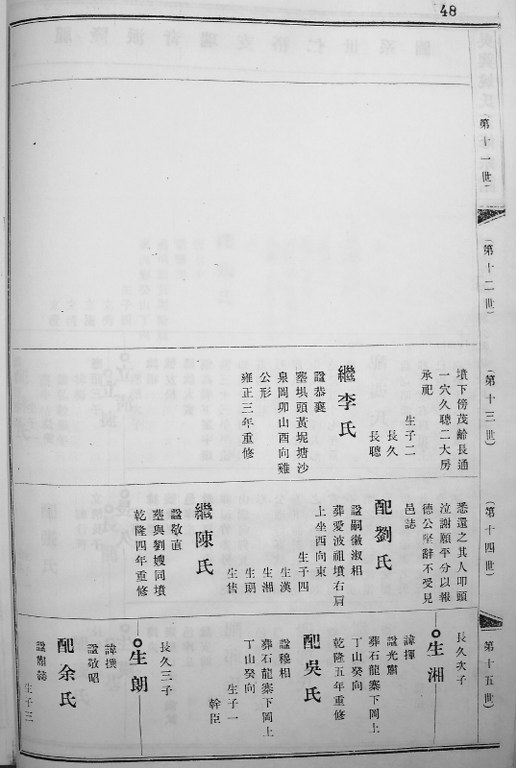 48
(第十一世)
(第十二世)
(第十三世)
墳下傍茂齡長通
一穴久聰二大房
承祀
生子二
長久
長聰
繼李氏
諡恭襄
墓塤頭黃坭塘沙
泉岡卯山酉向雞
公形
雍正三年重修
(第十四世)
悉還之其人叩頭
泣謝願平分以報
德公堅辭不受見
邑誌
配劉氏
諡嗣徽淑相
葬愛波祖墳右肩
上坐西向東
生子四
生漢
生湘
生朗
生售
繼陳氏
諡敬直
墓與劉嫂同墳
乾隆四年重修
(第十五世)
長久次子
生湘
諱揮
諡光肅
葬石龍寨下岡上
丁山癸向
乾隆五年重修
配吳氏
諡穆相
葬石龍寨下岡上
丁山癸向
生子一
幹臣
長久三子
生朗
諱撰
諡敬昭
配余氏
生子三